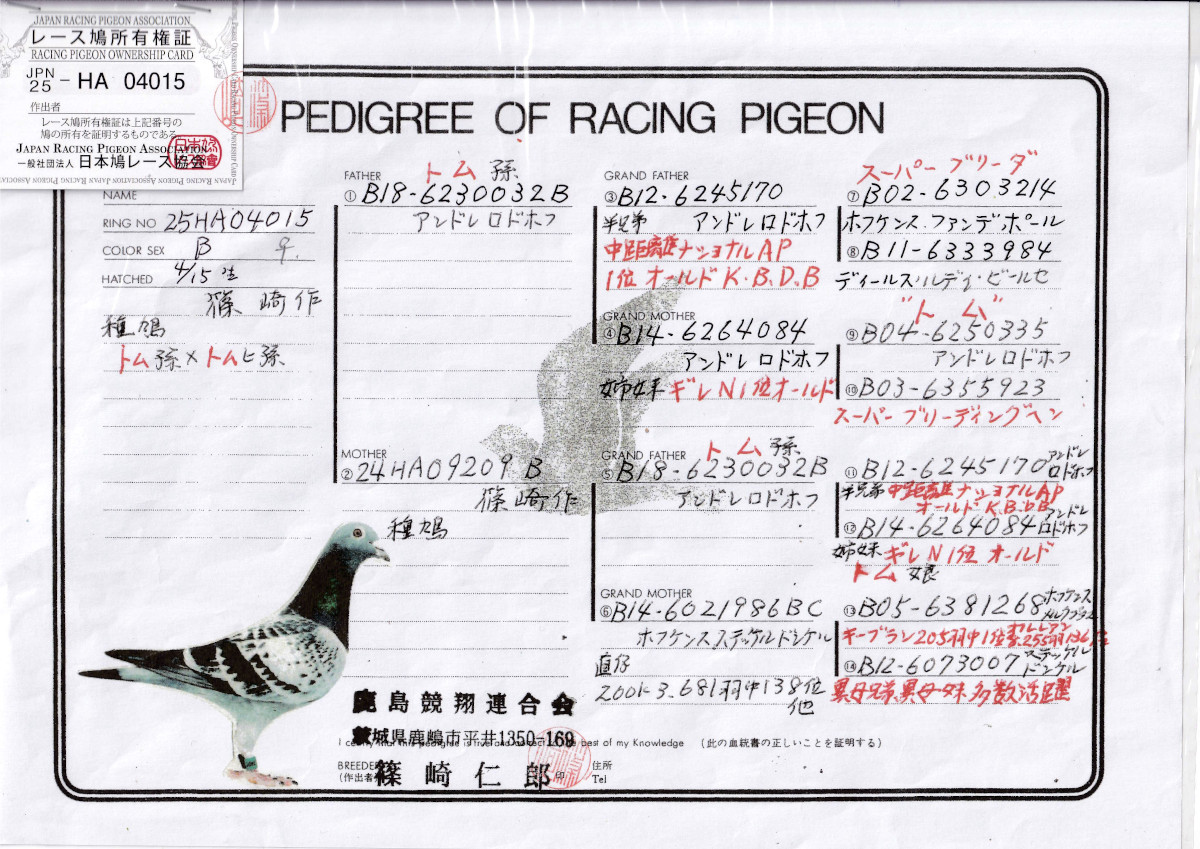 JAPAN RACING PIGEON ASSOCIATION
レース鳩所有権証
RACING PIGEON OWNERSHIP CARD
JPN 25 - HA 04015
作出者
レース鳩所有権証は上記番号の
鳩の所有を証明するものである
JAPAN RACING PIGEON ASSOCIATION
一般社団法人 日本鳩レース協会
PEDIGREE OF RACING PIGEON
NAME
RING NO 25HA04015
COLOR SEX B ♀
HATCHED 4/15生
篠崎作
種鳩
トム孫×トムヒ孫
FATHER トム孫
①B18-6230032B
アンドレロドホフ
MOTHER
②24HA09209 B
篠崎作
種鳩
GRAND FATHER
③B12-6245170
半兄弟 アンドレロドホフ
中距離ナショナルAP
1位 オールドK.B.D.B
GRAND MOTHER
④B14-6264084
アンドレロドホフ
姉妹 ギレN1位オールド
GRAND FATHER トム孫
⑤B18-6230032B
アンドレロドホフ
GRAND MOTHER
⑥B14-6021986BC
ホフケンスステッケルドンケル
直仔
200K 3.681羽中138位
他
スーパーブリーダ
⑦B02-6303214
ホフケンス.ファンデポール
⑧B11-6333984
ディールス・ルディ・ビールセ
"トム"
⑨B04-6250335
アンドレロドホフ
⑩B03-6355923
スーパーブリーディングヘン
⑪B12-6245170 アンドレロドホフ
半兄弟 中距離ナショナルAP
オールドK.B.D.B
⑫B14-6264084 アンドレロドホフ
姉妹 ギレN1位 オールド
トム娘
⑬B05-6381268 ホフケンス
キーブラン205羽中1位
⑭B12-6073007 ステッケルドンケル
異母兄弟異母妹多数活躍
鹿島競翔連合会
茨城県鹿嶋市平井1350-169
I certify that this pedigree is true and correct to the best of my Knowledge (この血統書の正しいことを証明する)
BREEDER
(作出者)
篠崎仁郎
印
住所
Tel